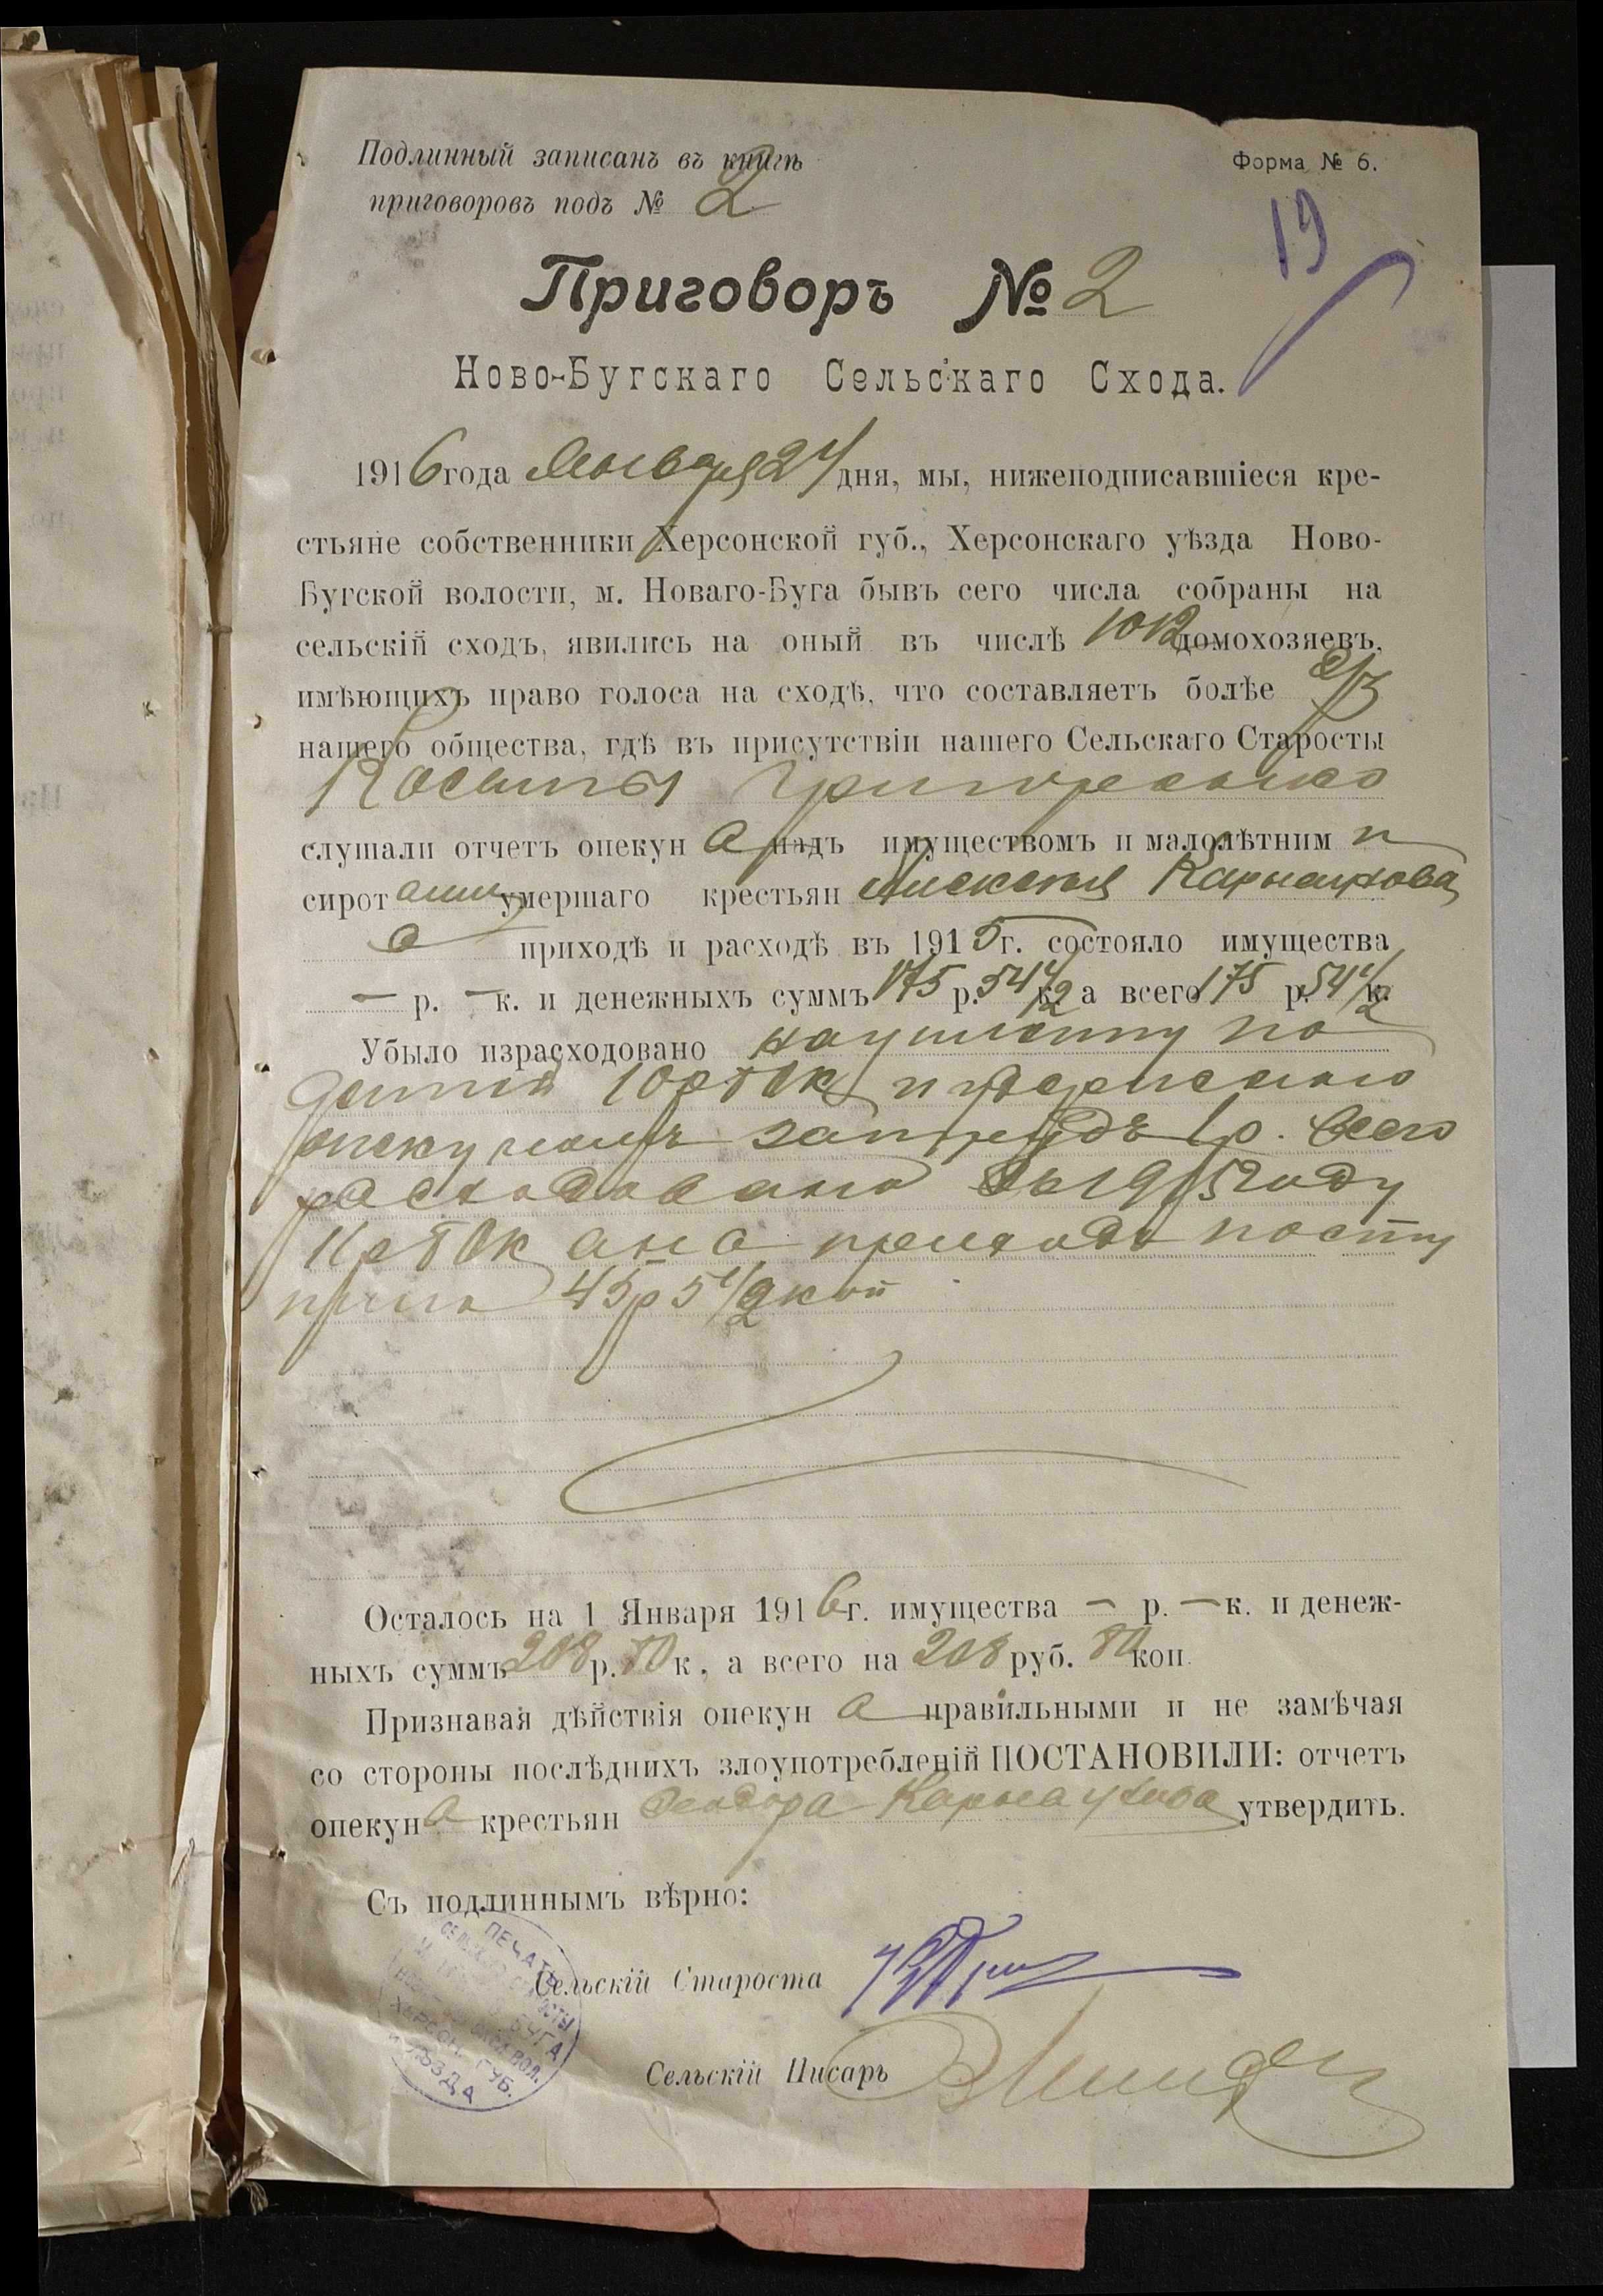 Подлинный записанъ въ книгѣ
приговоровъ подъ № 2
Форма № 6.
19
Приговоръ № 2
Ново-Бугскаго Сельскаго Схода.
1916 года Января 24 дня, мы, нижеподписавшіеся кре-
стьяне собственники Херсонской губ., Херсонскаго уѣзда Ново-
Бугской волости, м. Новаго-Буга бывъ сего числа собраны на
сельскій сходъ, явились на оный въ числѣ 1012 домохозяевъ,
имѣющихъ право голоса на сходѣ, что составляетъ болѣе 2/3
нашего общества, гдѣ въ присутствіи нашего Сельскаго Старосты
Косьмы
слушали отчетъ опекун а надъ имуществомъ и малолѣтним и
сирот ами умершаго крестьян Алексѣя Карнаухова
о приходѣ и расходѣ въ 1915 г. состояло имущества
— р. — к. и денежныхъ суммъ 175 р. 54 1/2 к. а всего 175 р. 54 1/2 к.
Убыло израсходовано на уплату по
датей 10 р 80 к и удержано
опекуномъ за трудъ 1 р. всего
расходовано въ 1915 году
11 р 80 к а на приходъ посту
пило 45 р 5 1/2 коп
Осталось на 1 Января 1916 г. имущества — р. — к. и денеж-
ныхъ суммъ 208 р. 80 к, а всего на 208 руб. 80 коп
Признавая дѣйствія опекун а правильными и не замѣчая
со стороны послѣднихъ злоупотребленій ПОСТАНОВИЛИ: отчетъ
опекун а крестьян Феодора Карнаухова утвердить.
Съ подлиннымъ вѣрно:
Сельскій Староста
Сельскій Писарь
ПЕЧАТЬ
БУГА
ХЕРСОН. ГУБ.
УѢЗДА